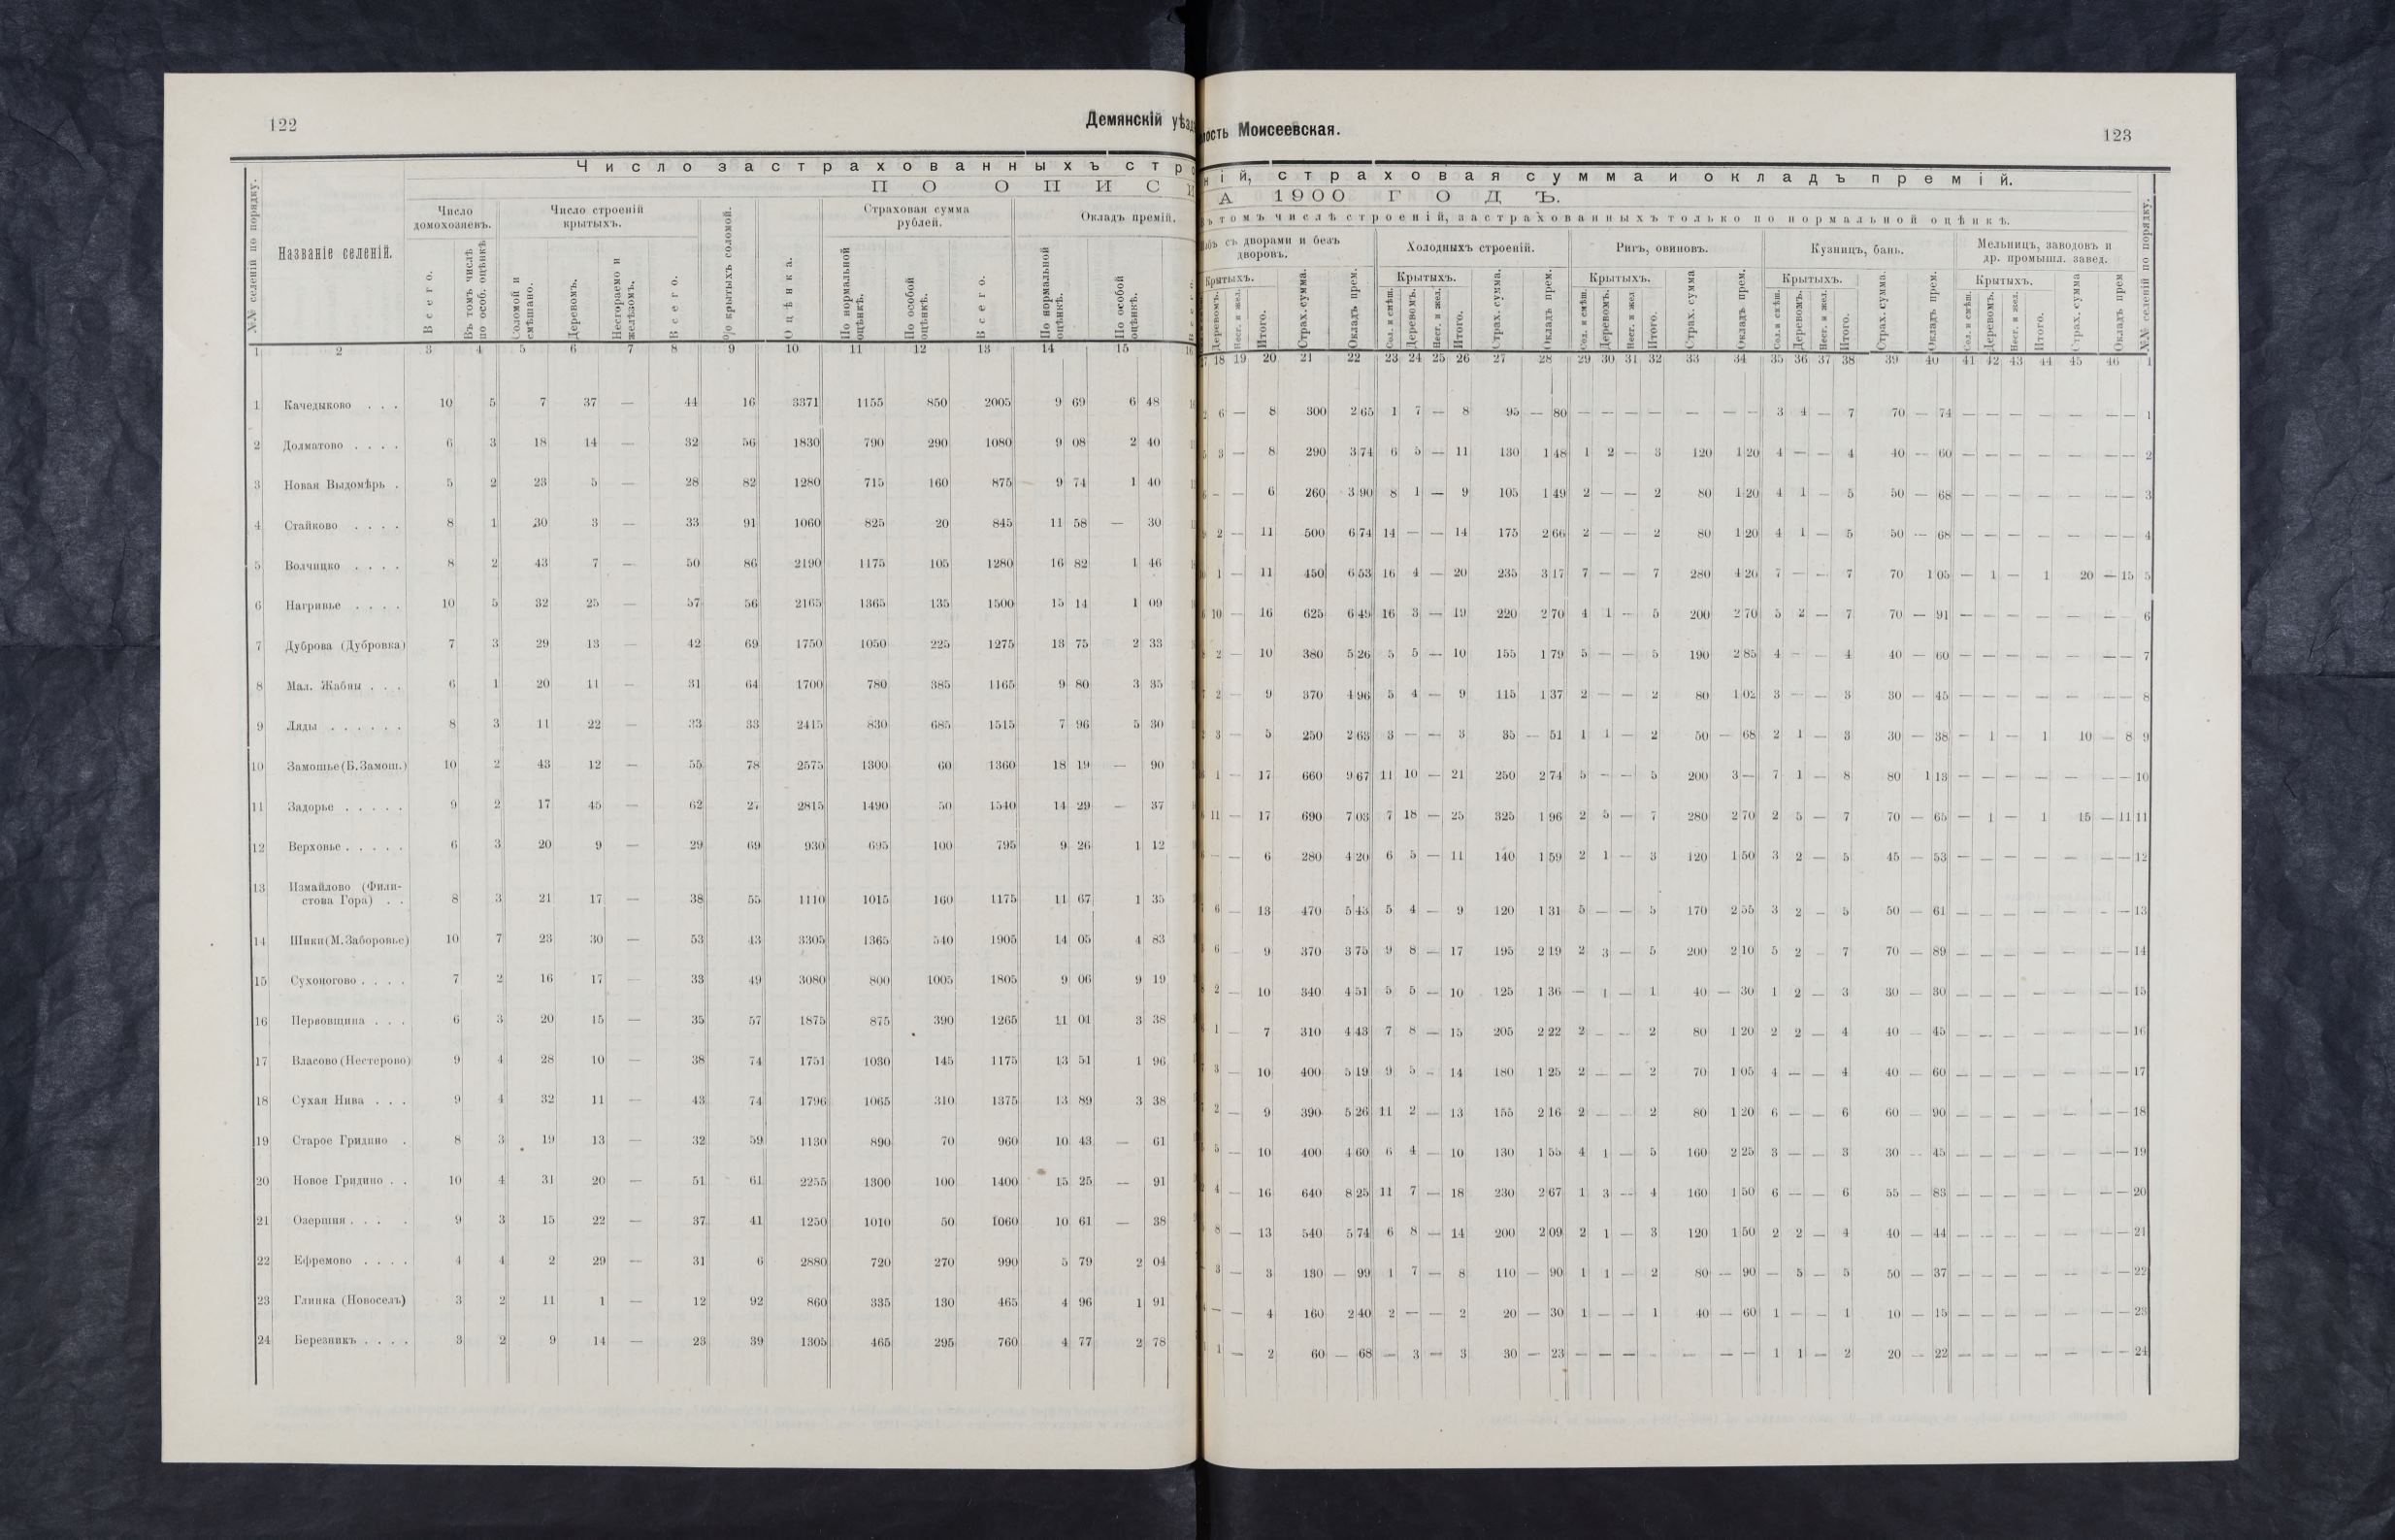 122
Демянскій уѣзд
ость Моисеевская.
123
Число застрахованныхъ стро
ній, страховая сумма и окладъ премій.
ПО ОПИС
А 1900 ГОДЪ.
ъ томъ числѣ строеній, застрахованныхъ только по нормальной оцѣнкѣ.
№№ селеній по порядку.
Названіе селеній.
Число домохозяевъ.
Всего.
Въ томъ числѣ по особ. оцѣнкѣ
Число строеній крытыхъ.
Соломой и смѣшано.
Деревомъ.
Несгораемо и желѣзомъ.
Всего.
% крытыхъ соломой.
Оцѣнка.
Страховая сумма рублей.
По нормальной оцѣнкѣ.
По особой оцѣнкѣ.
Всего.
Окладъ премій.
По нормальной оцѣнкѣ.
По особой оцѣнкѣ.
съ дворами и безъ дворовъ.
Крытыхъ.
Деревомъ.
Несг. и жел.
Итого.
Страх. сумма.
Окладъ прем.
Холодныхъ строеній.
Крытыхъ.
Сол. и смѣш.
Деревомъ.
Несг. и жел.
Итого.
Страх. сумма.
Окладъ прем.
Ригъ, овиновъ.
Крытыхъ.
Сол. и смѣш.
Деревомъ.
Несг. и жел
Итого.
Страх. сумма
Окладъ прем.
Кузницъ, бань.
Крытыхъ.
Сол. и смѣш.
Деревомъ.
Несг. и жел.
Итого.
Страх. сумма.
Окладъ прем.
Мельницъ, заводовъ и др. промышл. завед.
Крытыхъ.
Сол. и смѣш.
Деревомъ.
Несг. и жел.
Итого.
Страх. сумма
Окладъ прем
№№ селеній по порядку.
1 2 3 4 5 6 7 8 9 10 11 12 13 14 15 16
18 19 20 21 22 23 24 25 26 27 28 29 30 31 32 33 34 35 36 37 38 39 40 41 42 43 44 45 46 1
1 Качедыково . . . 10 5 7 37 — 44 16 3371 1155 850 2005 9 69 6 48
6 — 8 300 2 65 1 7 — 8 95 — 80 — — — — — — — 3 4 — 7 70 — 74 — — — — — — — 1
2 Долматово . . . . 6 3 18 14 — 32 56 1830 790 290 1080 9 08 2 40
3 — 8 290 3 74 6 5 — 11 130 1 48 1 2 — 3 120 1 20 4 — — 4 40 — 60 — — — — — — — 2
3 Новая Выдомѣрь . 5 2 23 5 — 28 82 1280 715 160 875 9 74 1 40
- — 6 260 3 90 8 1 — 9 105 1 49 2 — — 2 80 1 20 4 1 — 5 50 — 68 — — — — — — — 3
4 Стайково . . . . 8 1 30 3 — 33 91 1060 825 20 845 11 58 — 30
2 — 11 500 6 74 14 — — 14 175 2 66 2 — — 2 80 1 20 4 1 — 5 50 — 68 — — — — — — — 4
5 Волчицко . . . . 8 2 43 7 — 50 86 2190 1175 105 1280 16 82 1 46
1 — 11 450 6 53 16 4 — 20 235 3 17 7 — — 7 280 4 20 7 — — 7 70 1 05 — 1 — 1 20 — 15 5
6 Нагривье . . . . 10 5 32 25 — 57 56 2165 1365 135 1500 15 14 1 09
10 — 16 625 6 49 16 3 — 19 220 2 70 4 1 — 5 200 2 70 5 2 — 7 70 — 91 — — — — — — 6
7 Дуброва (Дубровка) 7 3 29 13 — 42 69 1750 1050 225 1275 13 75 2 33
2 — 10 380 5 26 5 5 — 10 155 1 79 5 — — 5 190 2 85 4 — — 4 40 — 60 — — — — — — — 7
8 Мал. Жабны . . . 6 1 20 11 — 31 64 1700 780 385 1165 9 80 3 35
2 — 9 370 4 96 5 4 — 9 115 1 37 2 — — 2 80 1 02 3 — — 3 30 — 45 — — — — — — — 8
9 Ляды . . . . . . 8 3 11 22 — 33 33 2415 830 685 1515 7 96 5 30
3 — 5 250 2 63 3 — — 3 35 — 51 1 1 — 2 50 — 68 2 1 — 3 30 — 38 — 1 — 1 10 — 8 9
10 Замошье (Б. Замош.) 10 2 43 12 — 55 78 2575 1300 60 1360 18 19 — 90
1 — 17 660 9 67 11 10 — 21 250 2 74 5 — — 5 200 3 — 7 1 — 8 80 1 13 — — — — — — — 10
11 Задорье . . . . . 9 2 17 45 — 62 27 2815 1490 50 1540 14 29 — 37
11 — 17 690 7 03 7 18 — 25 325 1 96 2 5 — 7 280 2 70 2 5 — 7 70 — 65 — 1 — 1 15 — 11 11
12 Верховье . . . . . 6 3 20 9 — 29 69 930 695 100 795 9 26 1 12
— — 6 280 4 20 6 5 — 11 140 1 59 2 1 — 3 120 1 50 3 2 — 5 45 — 53 — — — — — — — 12
13 Измайлово (Фили-
стова Гора) . . 8 3 21 17 — 38 55 1110 1015 160 1175 11 67 1 35
6 — 13 470 5 43 5 4 — 9 120 1 31 5 — — 5 170 2 55 3 2 — 5 50 — 61 — — — — — — — 13
14 Шики (М. Заборовье) 10 7 23 30 — 53 43 3305 1365 540 1905 14 05 4 83
6 — 9 370 3 75 9 8 — 17 195 2 19 2 3 — 5 200 2 10 5 2 — 7 70 — 89 — — — — — — — 14
15 Сухоногово . . . . 7 2 16 17 — 33 49 3080 800 1005 1805 9 06 9 19
2 — 10 340 4 51 5 5 — 10 125 1 36 — 1 — 1 40 — 30 1 2 — 3 30 — 30 — — — — — — — 15
16 Первовщина . . . 6 3 20 15 — 35 57 1875 875 390 1265 11 01 3 38
1 — 7 310 4 43 7 8 — 15 205 2 22 2 — — 2 80 1 20 2 2 — 4 40 — 45 — — — — — — — 16
17 Власово (Нестерово) 9 4 28 10 — 38 74 1751 1030 145 1175 13 51 1 96
3 — 10 400 5 19 9 5 — 14 180 1 25 2 — — 2 70 1 05 4 — — 4 40 — 60 — — — — — — — 17
18 Сухая Нива . . . 9 4 32 11 — 43 74 1796 1065 310 1375 13 89 3 38
2 — 9 390 5 26 11 2 — 13 155 2 16 2 — — 2 80 1 20 6 — — 6 60 — 90 — — — — — — — 18
19 Старое Гридино . 8 3 19 13 — 32 59 1130 890 70 960 10 43 — 61
5 — 10 400 4 60 6 4 — 10 130 1 55 4 1 — 5 160 2 25 3 — — 3 30 — 45 — — — — — — — 19
20 Новое Гридино . . 10 4 31 20 — 51 61 2255 1300 100 1400 15 25 — 91
4 — 16 640 8 25 11 7 — 18 230 2 67 1 3 — 4 160 1 50 6 — — 6 55 — 83 — — — — — — — 20
21 Озершня . . . . 9 3 15 22 — 37 41 1250 1010 50 1060 10 61 — 38
8 — 13 540 5 74 6 8 — 14 200 2 09 2 1 — 3 120 1 50 2 2 — 4 40 — 44 — — — — — — — 21
22 Ефремово . . . . 4 4 2 29 — 31 6 2880 720 270 990 5 79 2 04
3 — 3 130 — 99 1 7 — 8 110 — 90 1 1 — 2 80 — 90 — 5 — 5 50 — 37 — — — — — — — 22
23 Глинка (Новосель) 3 2 11 1 — 12 92 860 335 130 465 4 96 1 91
— — 4 160 2 40 2 — — 2 20 — 30 1 — — 1 40 — 60 1 — — 1 10 — 15 — — — — — — — 23
24 Березникъ . . . . 3 2 9 14 — 23 39 1305 465 295 760 4 77 2 78
1 — 2 60 — 68 — 3 — 3 30 — 23 — — — — — — — 1 1 — 2 20 — 22 — — — — — — — 24